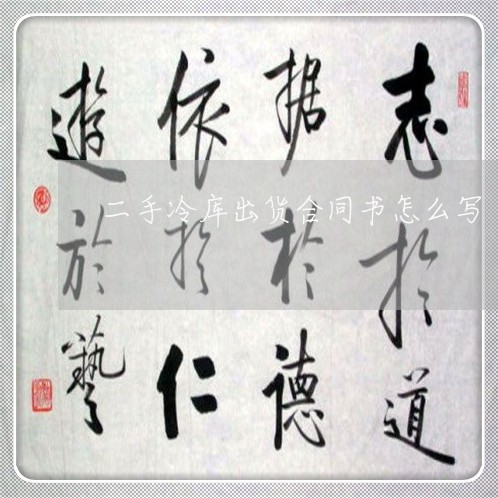 志於道
据於德
依於仁
遊於藝
二手冷库出货合同书怎么写